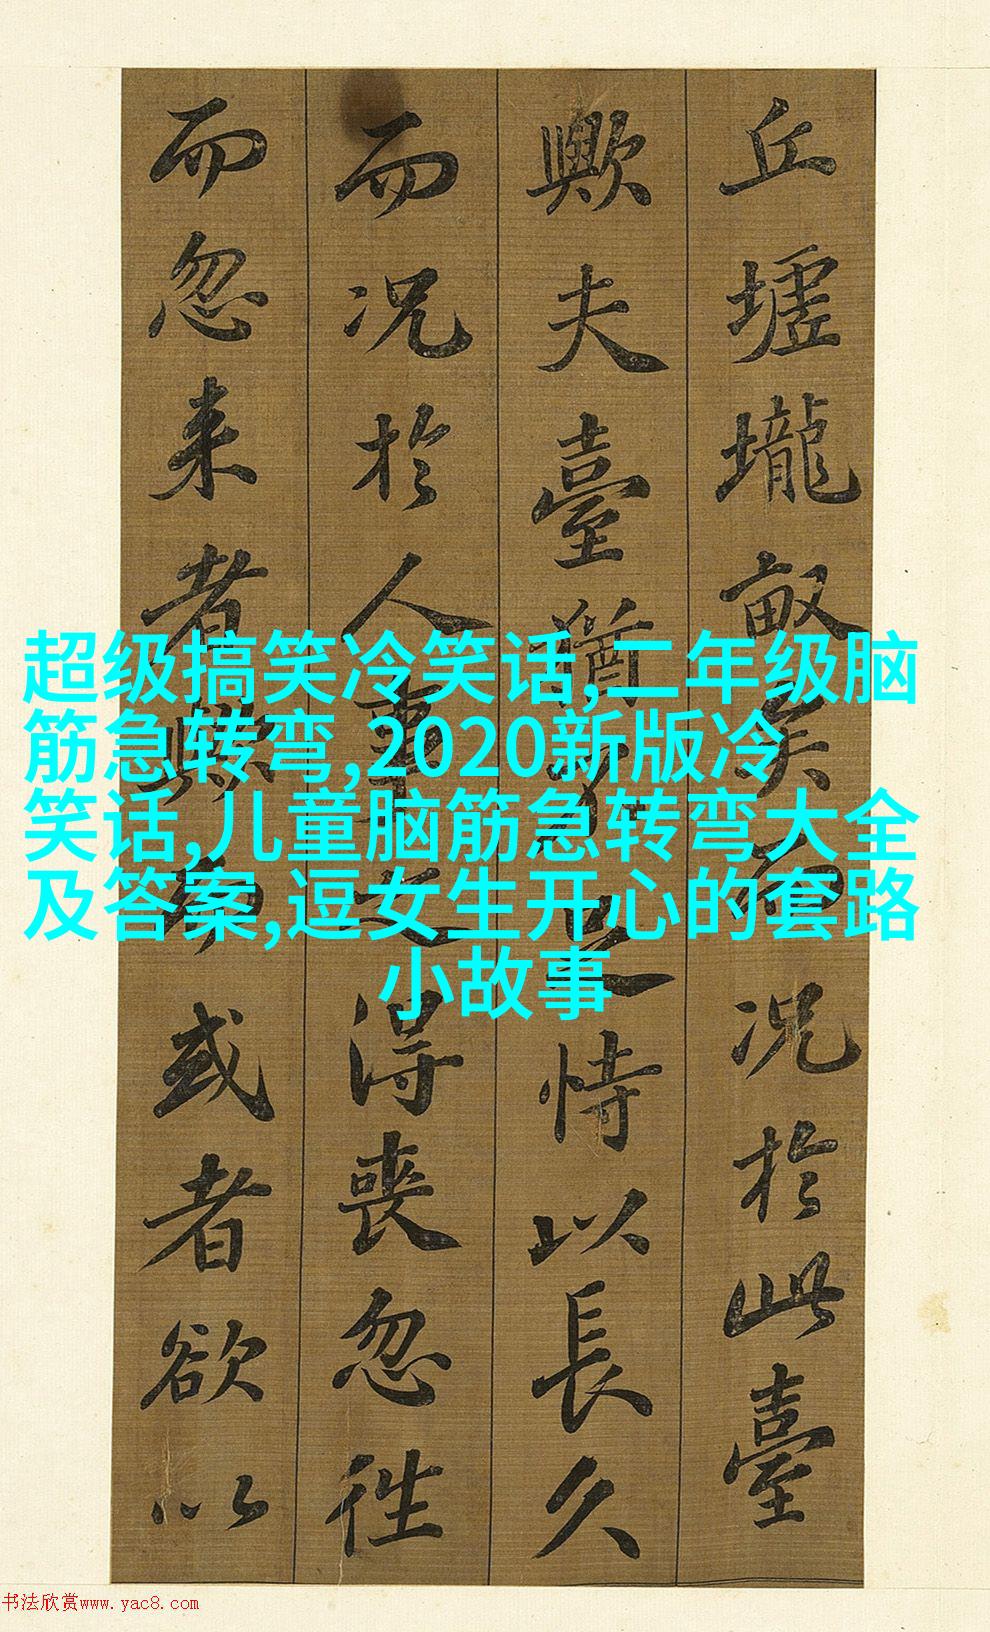 丘墟壠畝矣而况於此臺
歟夫臺猶不足恃以長久
而况於人事之得喪忽徃
而忽来者歟而或者欲以
超级搞笑冷笑话,二年级脑
筋急转弯,2020新版冷
笑话,儿童脑筋急转弯大全
及答案,逗女生开心的套路
小故事
书法欣赏www.yac8.com